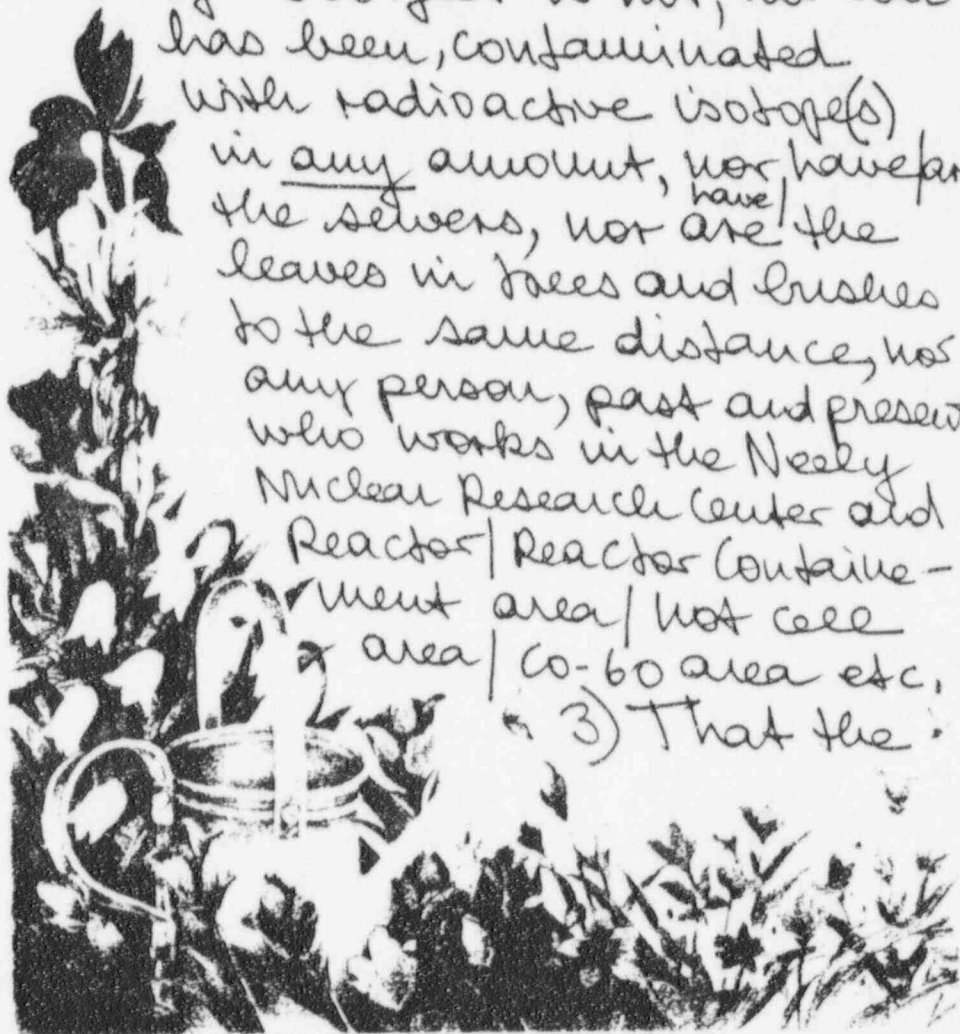 is not, nor
has been, contaminated
with radioactive isotope(s)
in any amount, nor have/
have/
the sewers, nor are the
leaves in trees and bushes
to the same distance, nor
any person, past and present
who works in the Neely
Nuclear Research Center and
Reactor/Reactor Containe-
ment area/hot cell
area/Co-60 area etc.
3) That the